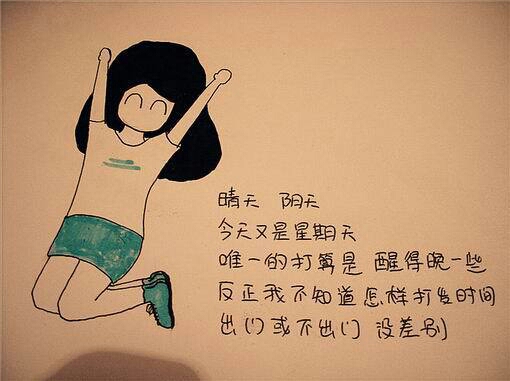 晴天 阴天
今天又是星期天
唯一的打算是 醒得晚一些
反正我不知道怎样打发时间
出门或不出门 没差别